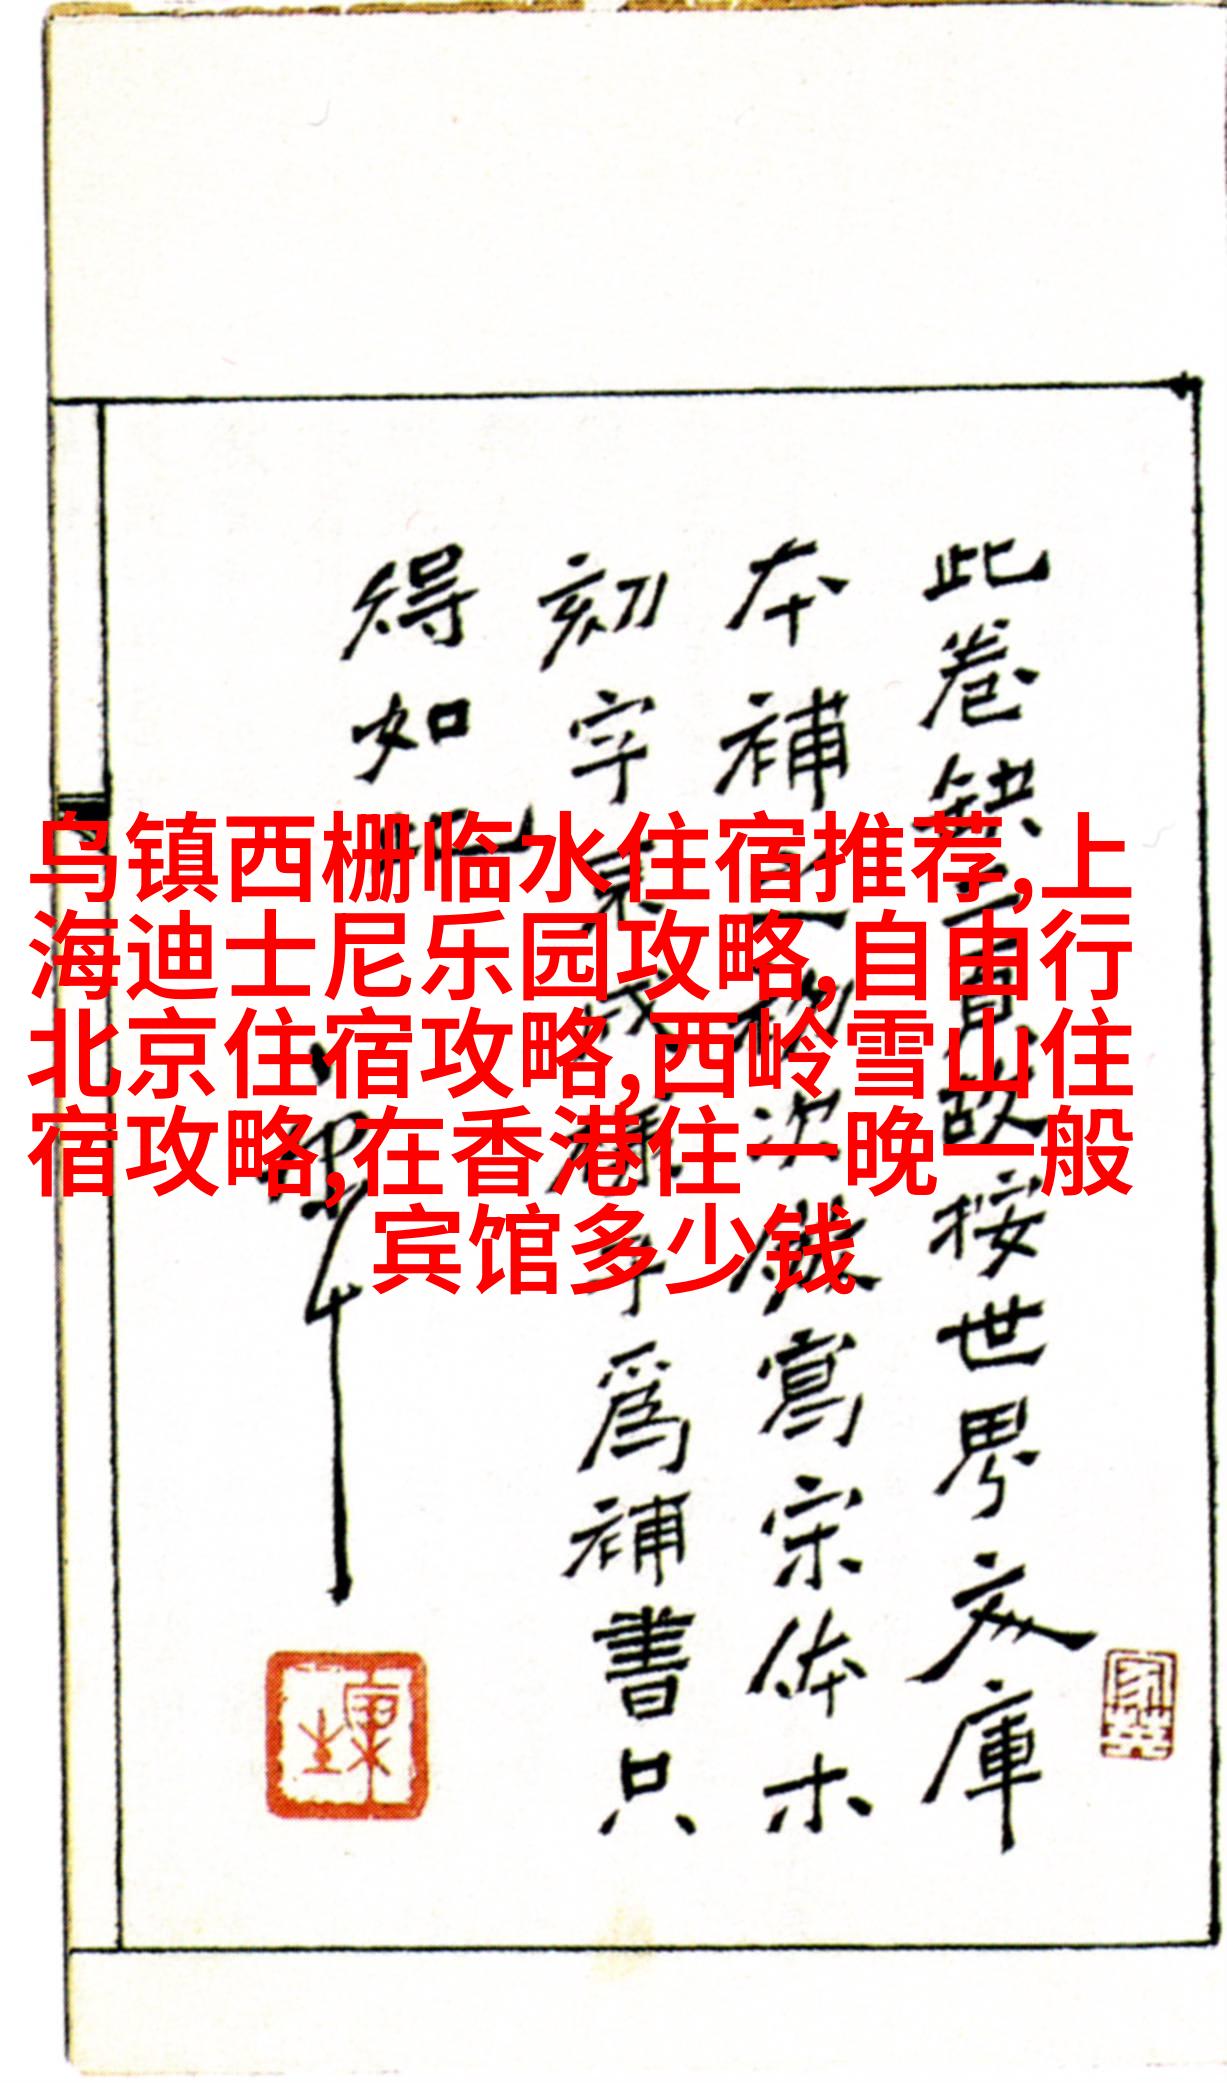 乌镇西栅临水住宿推荐,上
海迪士尼乐园攻略,自由行
北京住宿攻略,西岭雪山住
宿攻略,在香港住一晚一般
宾馆多少钱
此卷缺二頁故按世界文庫
本補之抄次做寫宋体木
刻字 為補書只
得如